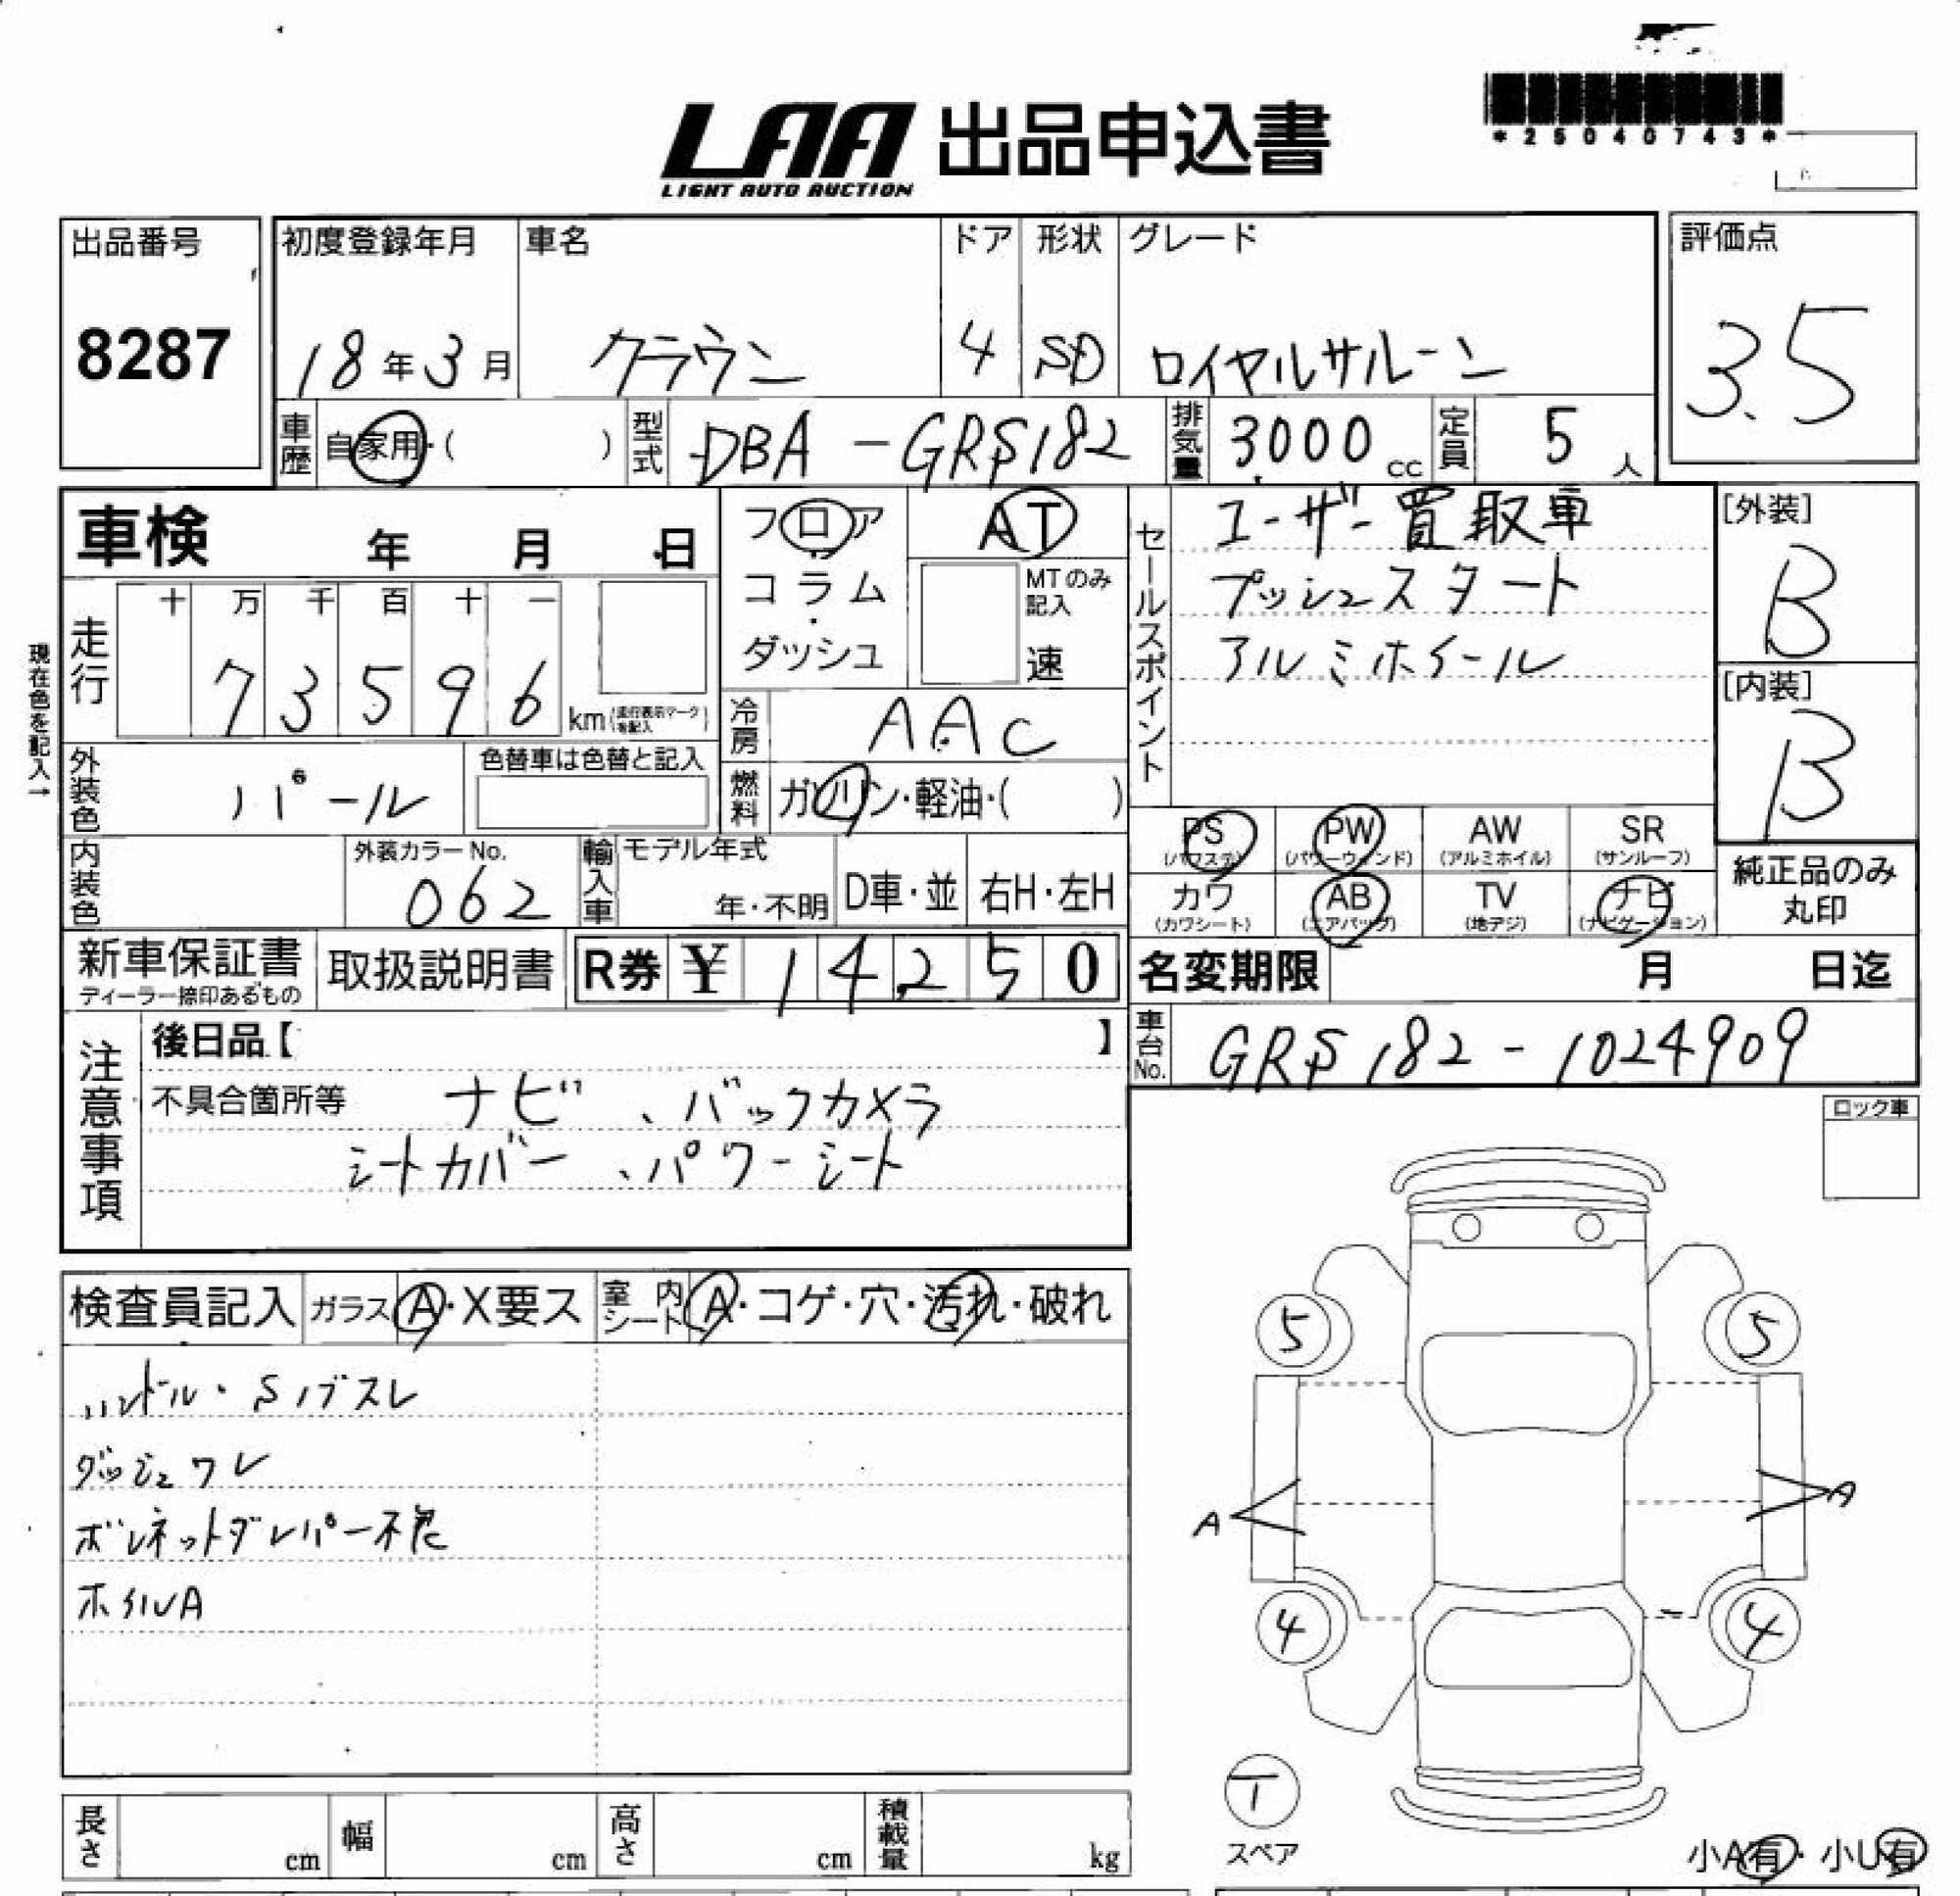 *25040743*
LAA 出品申込書
LIGHT AUTO AUCTION
出品番号
8287
初度登録年月
18年3月
車名
クラウン
ドア
4
形状
SD
グレード
ロイヤルサルーン
評価点
3.5
車歴
自家用・( )
型式
DBA-GRS182
排気量
3000cc
定員
5人
車検 年 月 日
現在色を記入→
走行
十 万 千 百 十 一
7 3 5 9 6 km(走行表示マークを記入)
フロア
コラム
ダッシュ
AT
MTのみ記入
速
冷房
AAC
燃料
ガソリン・軽油・( )
外装色
パール
色替車は色替と記入
内装色
外装カラーNo.
062
輸入車
モデル年式
年・不明
D車・並
右H・左H
セールスポイント
ユーザー買取車
プッシュスタート
アルミホイール
[外装]
B
[内装]
B
PS
(パワステ)
PW
(パワーウィンド)
AW
(アルミホイル)
SR
(サンルーフ)
カワ
(カワシート)
AB
(エアバック)
TV
(地デジ)
ナビ
(ナビゲーション)
純正品のみ
丸印
新車保証書
ディーラー捺印あるもの
取扱説明書
R券 ¥ 1 4 2 5 0
名変期限 月 日迄
車台No.
GRS182-1024909
注意事項
後日品【 】
不具合箇所等 ナビ、バックカメラ
シートカバー、パワーシート
ロック車
検査員記入
ガラス A・X要ス
室内シート A・コゲ・穴・汚れ・破れ
ハンドル・Sノブスレ
ダッシュワレ
ボンネットダンパー不良
ホイルA
5
5
A
A
4
4
T
スペア
小A有・小U有
長さ cm
幅 cm
高さ cm
積載量 kg